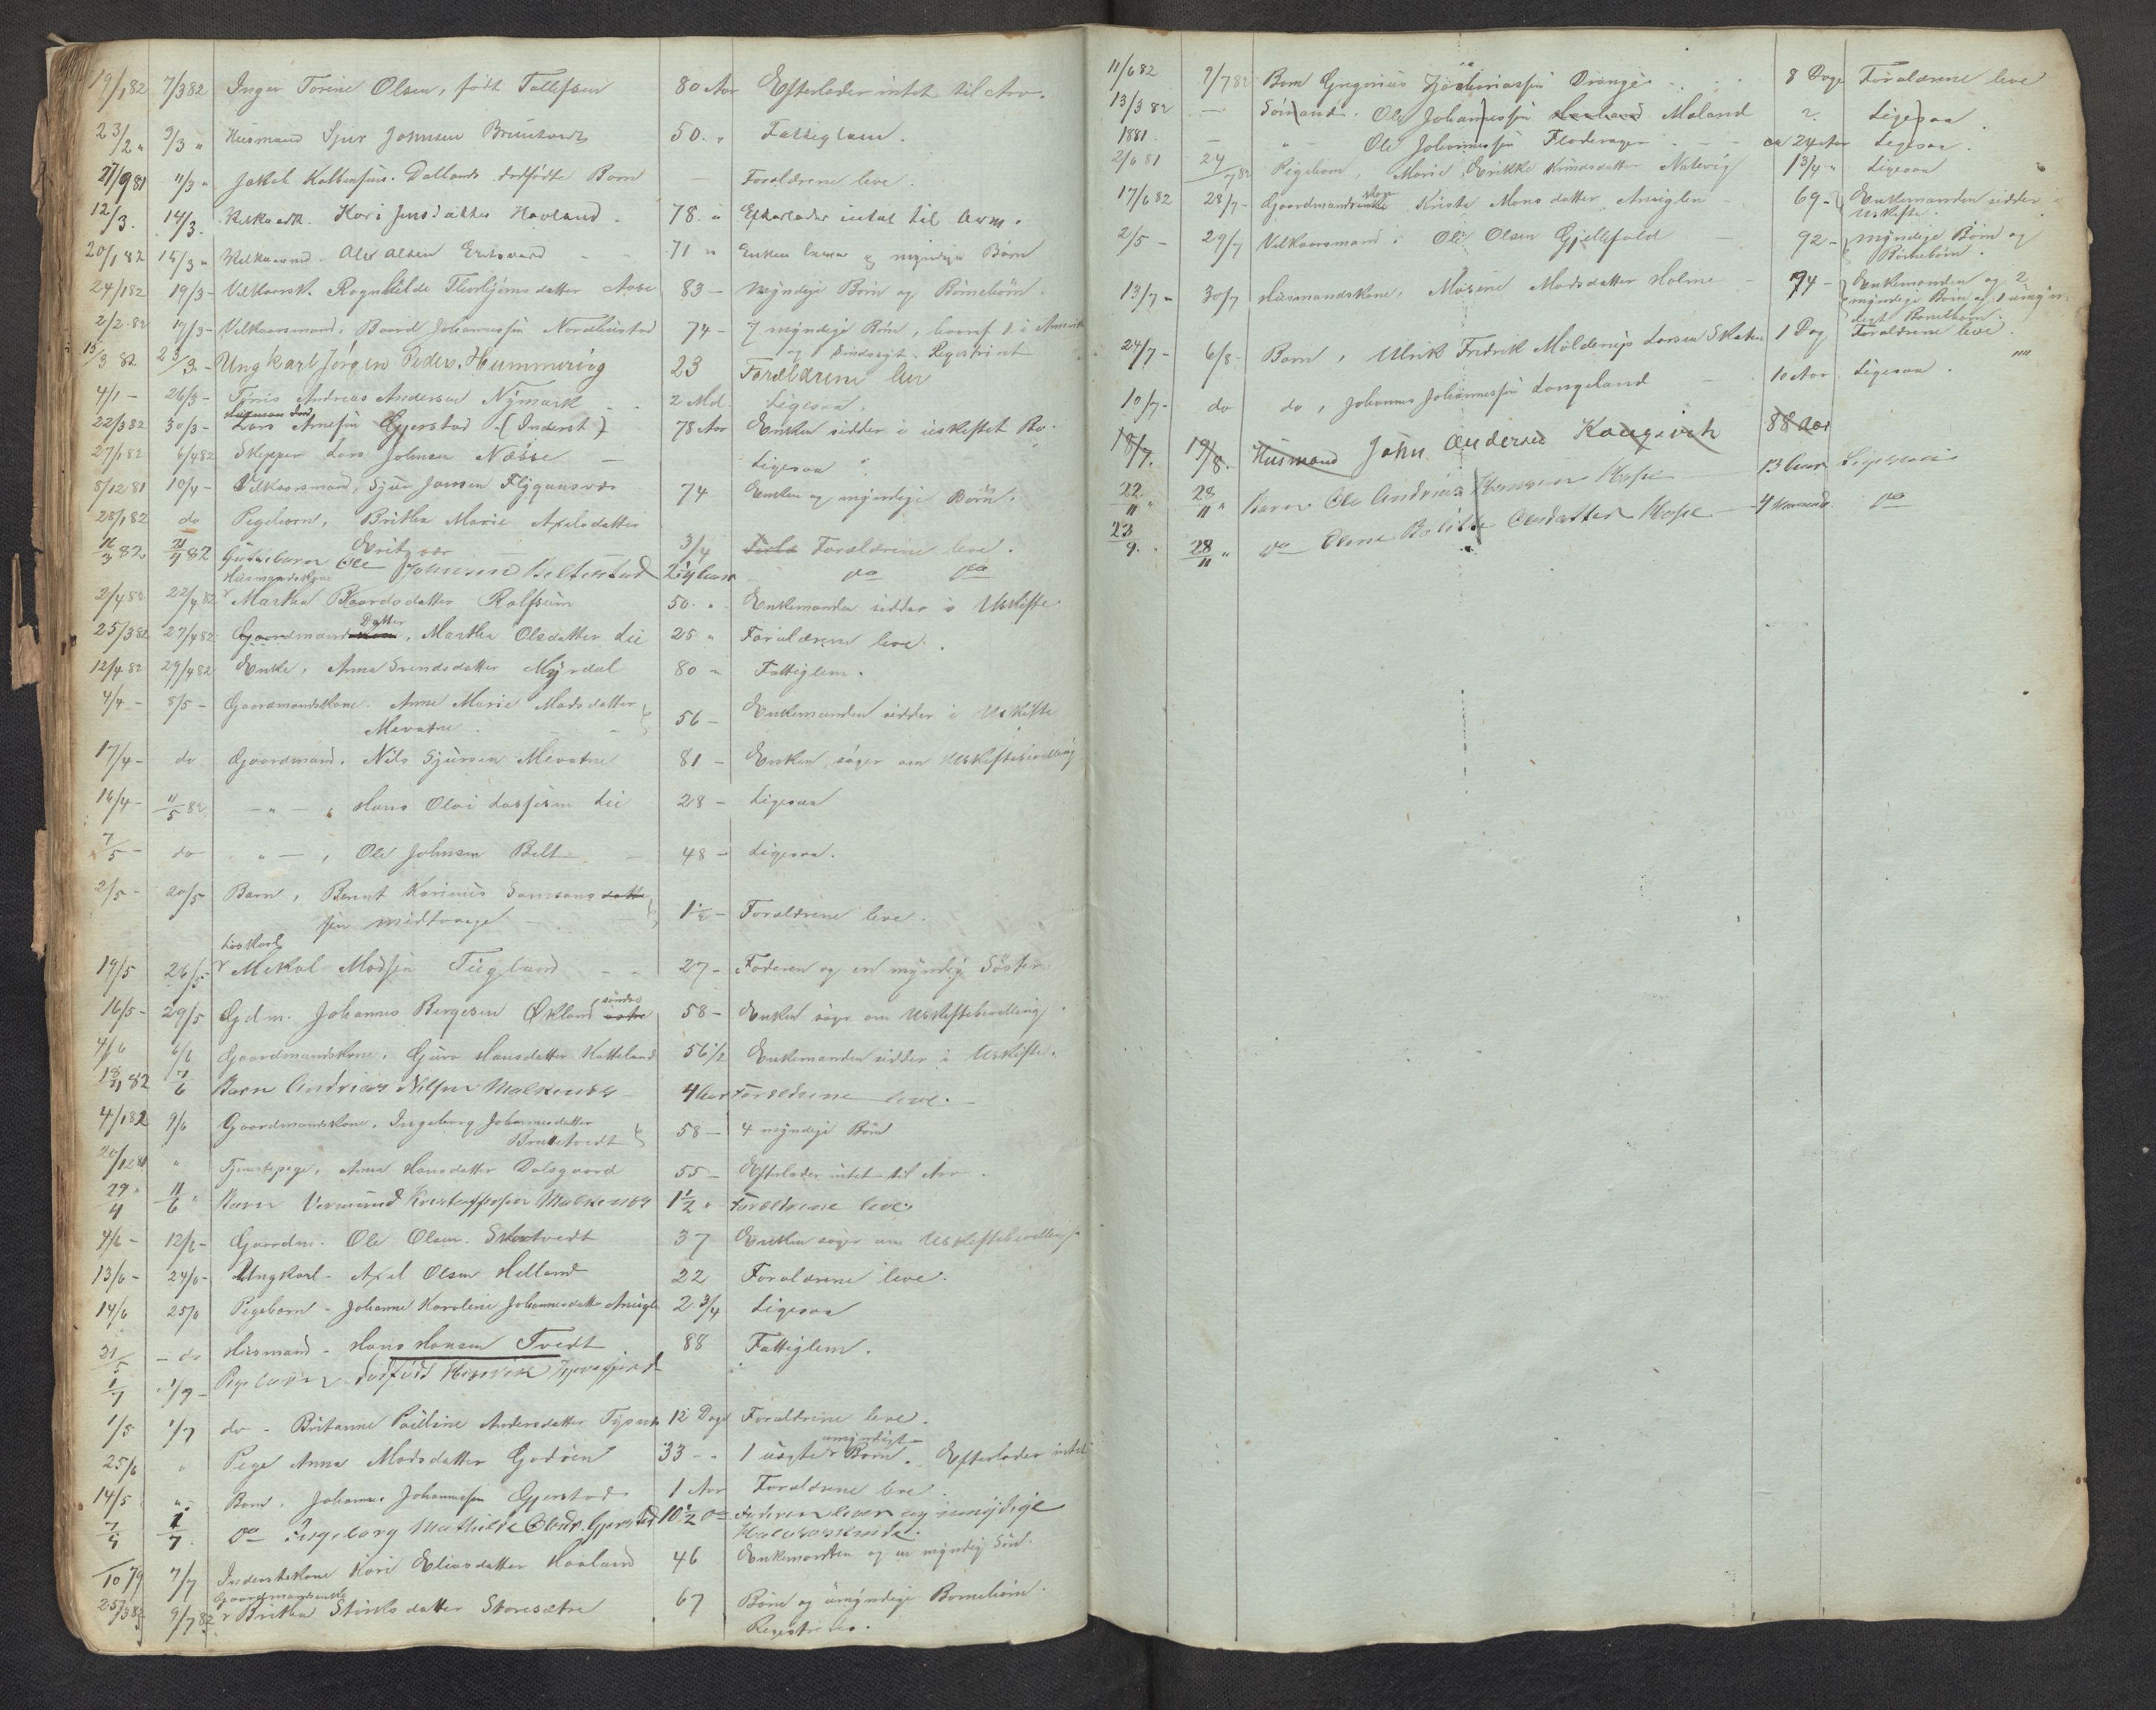 19/1 82 7/3 82 Inger Torine Olsen, født Tollefsen 80 Aar Efterlader intet til Arv.
23/2 " 9/3 " Husmand Sjur Johnsen 50. " Fattiglem.
27/9 81 11/3 " Jakob Dallands dødfødte Barn — Forældrene leve.
12/3. 14/3. Kari Jensdatter Havland 78. " Efterlader intet til Arv.
20/1 82 15/3 " Ole Olsen 71 " Enken lever og myndige Børn
24/1 82 19/3 - Vilkaarsk. Ragnhilde Thorbjørnsdatter Aase 83 - Myndige Børn og Børnebørn.
2/2 82 19/3 - Vilkaarsmand, Baard Johannessen Nordhustad 74 - 7 myndige Børn, hvoraf 1 i Amerika
og Registreret
15/3 82 23/3 - Ungkarl Jørgen Peders. Hummervig 23 Forældrene lever
4/1 - 26/3 - Andreas Andersen Nymark 2 Md. Ligesaa.
22/3 82 30/3 - Lars Arnesen Gjerstad (Inderst) 78 Aar Enken sidder i uskiftet Bo.
27/1 82 6/4 82 Skipper Lars Johnsen Næsse — Ligesaa
8/12 81 10/4 - Vilkaarsmand, Sjur Jansen Flygansvær 74 Enken og myndige Børn.
28/1 82 do Pigebarn, Britha Marie Axelsdatter
Eritzvær 3/4 Forældrene leve.
16/3 82 21/4 82 Guttebarn Ole Johnsen Beltestad 2 1/4 Aar do do
Husmandskone
2/4 82 22/4 82 Martha Baardsdatter Rolfsun 50. " Enkemanden sidder i Uskifte.
25/3 82 27/4 82 Gaardmands Datter, Martha Olsdatter Lie 25 " Forældrene leve.
12/4 82 29/4 82 Enke, Anna Svendsdatter Myrdal 80 " Fattiglem.
4/4 - 8/5 - Gaardmandskone. Anne Marie Madsdatter
Mevatne. 56 - Enkemanden sidder i Uskifte
17/4 - do Gaardmand. Nils Sjursen Mevatne 81 - Enken søger om Uskiftebevilling
16/4 - 11/5 82 — " — , Hans Olai Larsen Lie 28 - Ligesaa
7/5 - do " — , Ole Johnsen Belt 48 - Ligesaa.
2/5 - 20/5 Barn, Bernt Karinius Samsons datter
sen Midtvaage 1 1/2 - Forældrene leve.
Løskarl
19/5 26/5 - Mikal Madsen Tugland 27 - Faderen og en myndig Søster
16/5 - 29/5 Gdm. Johannes Børgesen Økland søndre østre 58 - Enken søger om Uskiftebevilling.
4/6 6/6 Gaardmandskone. Guro Hansdatter Katteland 56 1/2 Enkemanden sidder i Uskifte.
82 7/6 Barn Andreas Nilsen Malkenes 4 Aar Forældrene leve.
4/1 82 9/6 Gaardmandskone, Ingeborg Johannesdatter
58 - 4 myndige Børn
20/12 81 " Tjenestepige, Anna Hansdatter Dalsgaard 55 - Efterlader intet til Arv.
29/4 " 11/6 " Barn Vermund Kristoffersen Malkenes 1 1/2 " Forældrene leve.
4/6 - 12/6 - Gaardm. Ole Olsen 37 Enken søger om Uskiftebevilling
13/6 - 24/6 - Ungkarl - Axel Olsen Helland 22 Forældrene leve.
14/6 25/6 Pigebarn - Johanne Karoline Johannesdatter 2 3/4 Ligesaa
21/5 - do Husmand - Hans Hansen Tvedt 88 Fattiglem.
1/7 1/7 - Pigebarn dødfød
1/5 1/7 do - Britanne Pauline Andersdatter Tysnes 12 Dage Forældrene leve.
25/6 " Pige Anna Madsdatter Godøen 33 - " 1 uægte umyndigt Barn. Efterlader intet
14/5 " Barn, Johannes Johannessen Gjerstad 1 Aar Forældrene leve.
7/5 1/7. do Ingeborg Mathilde Olsdr. Gjerstad 10 1/2 do Faderen lever og umyndige
Halvsøskende.
/10 79 7/7 Inderstkone Kari Eliasdatter Haaland 46 Enkemanden og en myndig Søn.
Gaardmandsenke
25/3 82 9/7 82 Britha Størksdatter Storesætre 67 Børn og umyndige Børnebørn.
Registreres.
11/6 82 9/7 82 Barn Gregorius Drange 8 Dage Forældrene leve
13/3 82 — Sømand. Ole Johannessen Haaland Moland ? Ligesaa
1881. — " - Ole Johannessen Flodevaagen - ca 24 Aar Ligesaa.
2/6 81 24/7 82 Pigebarn, Marie Erikke Knudsdatter Natvig 1 3/4 " Ligesaa
17/6 82 28/7 - Gaardmandsenke kone Kirste Monsdatter 69 - Enkemanden sidder i
Uskifte.
2/5 - 29/7 Vilkaarsmand, Ole Olsen Gjellefald 92 - Myndige Børn og
Børnebørn.
13/7 - 30/7 Husmandskone, Madsdatter Holme 74 - Enkemanden og 2
myndige Børn og 1 umyn-
digt Barnebarn.
24/7 - 6/8 - Barn, Ulrik Fredrik Mølderup Larsen Skaten 1 Dag Forældrene leve.
10/7 - do do, Johannes Johannessen Langeland 10 Aar. Ligesaa.
18/7. 19/8. Husmand John Andersen Kongsvik 88 Aar
22/11 " 28/11 " Barn Ole Andreas Hansen Hope 13 Aar Ligesaa
23/9. 28/11 " do Olene Olsdatter Hope 4 Maaneder do